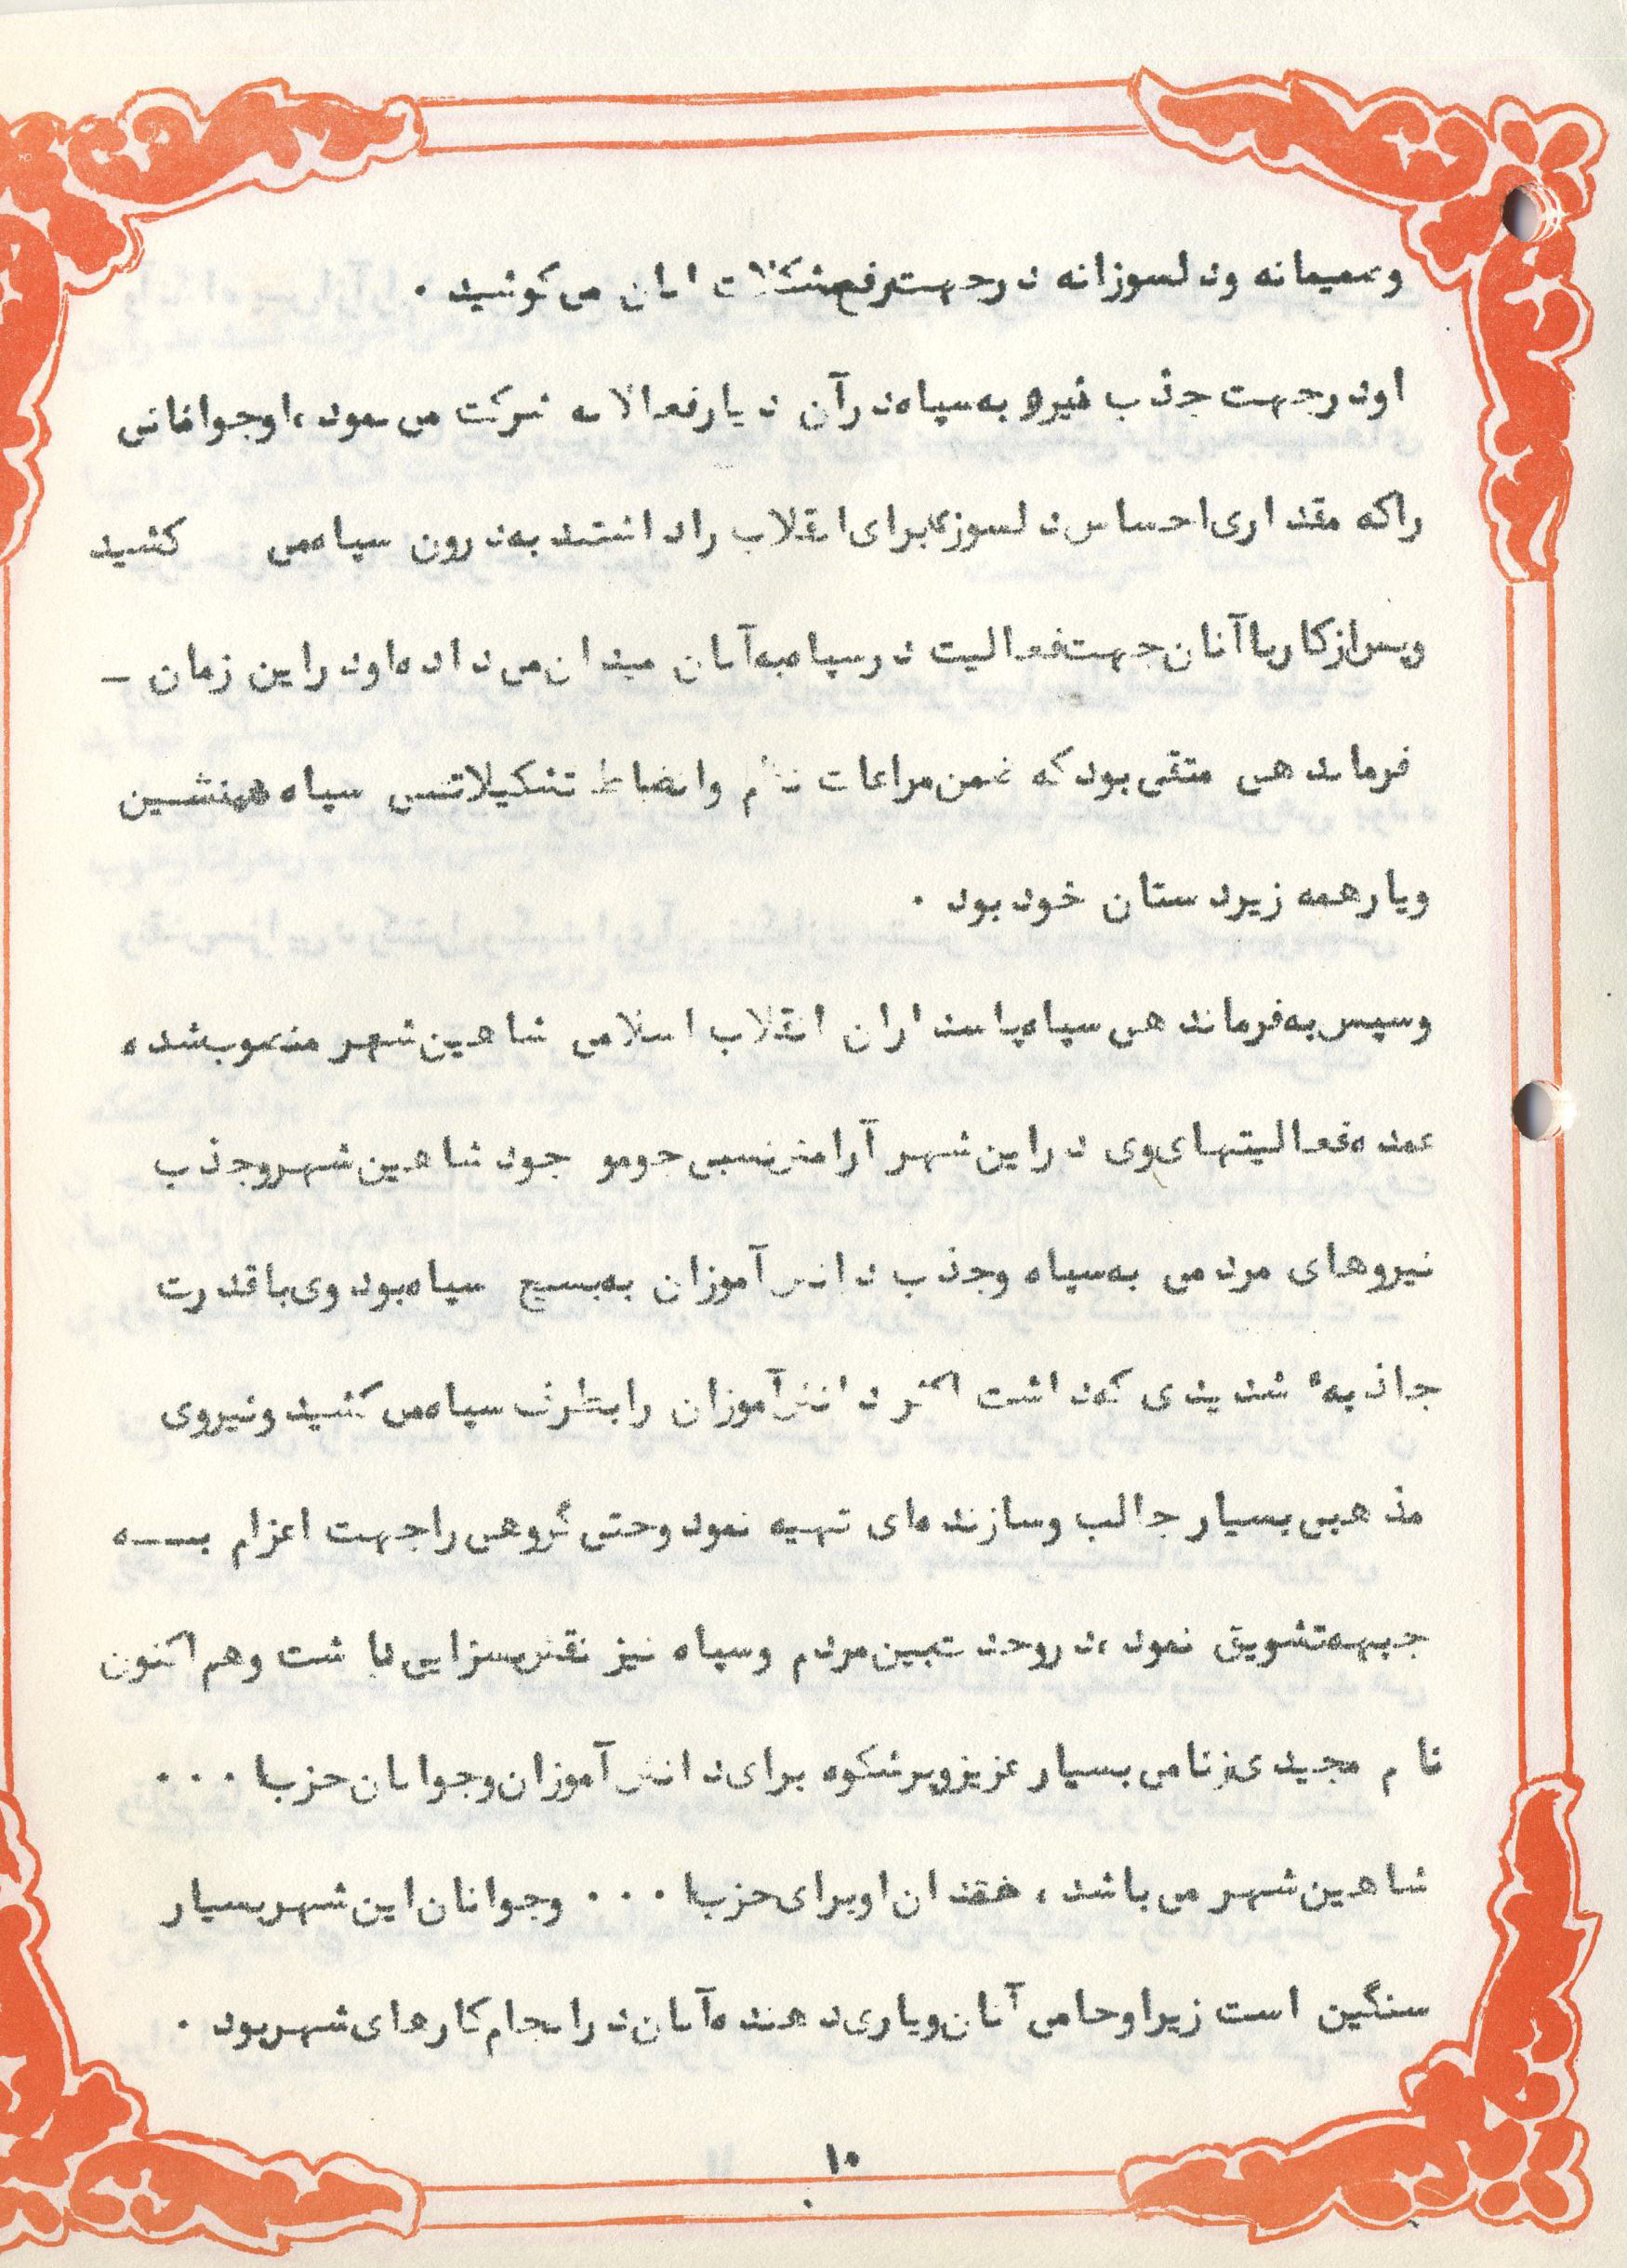 وصمیمانه ودلسوزانه درجهت رفع مشکلات آنان می کوشید .
اودرجهت جذب نیرو به سپاه درآن دیارفعالانه شرکت می نمود ، اوجوانانی
راکه مقداری احساس دلسوزی برای انقلاب راداشتند به درون سپاه می کشید
وپس ازکاربا آنان جهت فعالیت درسپاه به آنان میدان می داد ه اودراین زمان -
فرماندهی متقی بود که ضمن مراعات نظم وانضباط تشکیلاتی سپاه همنشین
ویارهمه زیردستان خود بود .
وسپس به فرماندهی سپاه پاسداران انقلاب اسلامی شاهین شهر منصوب شده
عمده فعالیتهای وی دراین شهر آرامش نسبی جو موجود شاهین شهر وجذب
نیروهای مردمی به سپاه وجذب دانش آموزان به بسیج سپاه بود وی باقدرت
جاذبهٔ شدیدی که داشت اکثر دانش آموزان رابطرف سپاه می کشید ونیروی
مذهبی بسیار جالب وسازنده ای تهیه نمود وحتی گروهی راجهت اعزام بـــه
جبهه تشویق نمود ، دروحدت بین مردم وسپاه نیز نقش بسزایی داشت وهم اکنون
نام مجیدی فرنامی بسیار عزیز وپرشکوه برای دانش آموزان وجوانان حزب ا . . .
شاهین شهر می باشد ، فقدان اوبرای حزب ا . . . وجوانان این شهر بسیار
سنگین است زیرا وحامی آنان ویاری دهنده آنان درانجام کارهای شهر بود .
۱۰